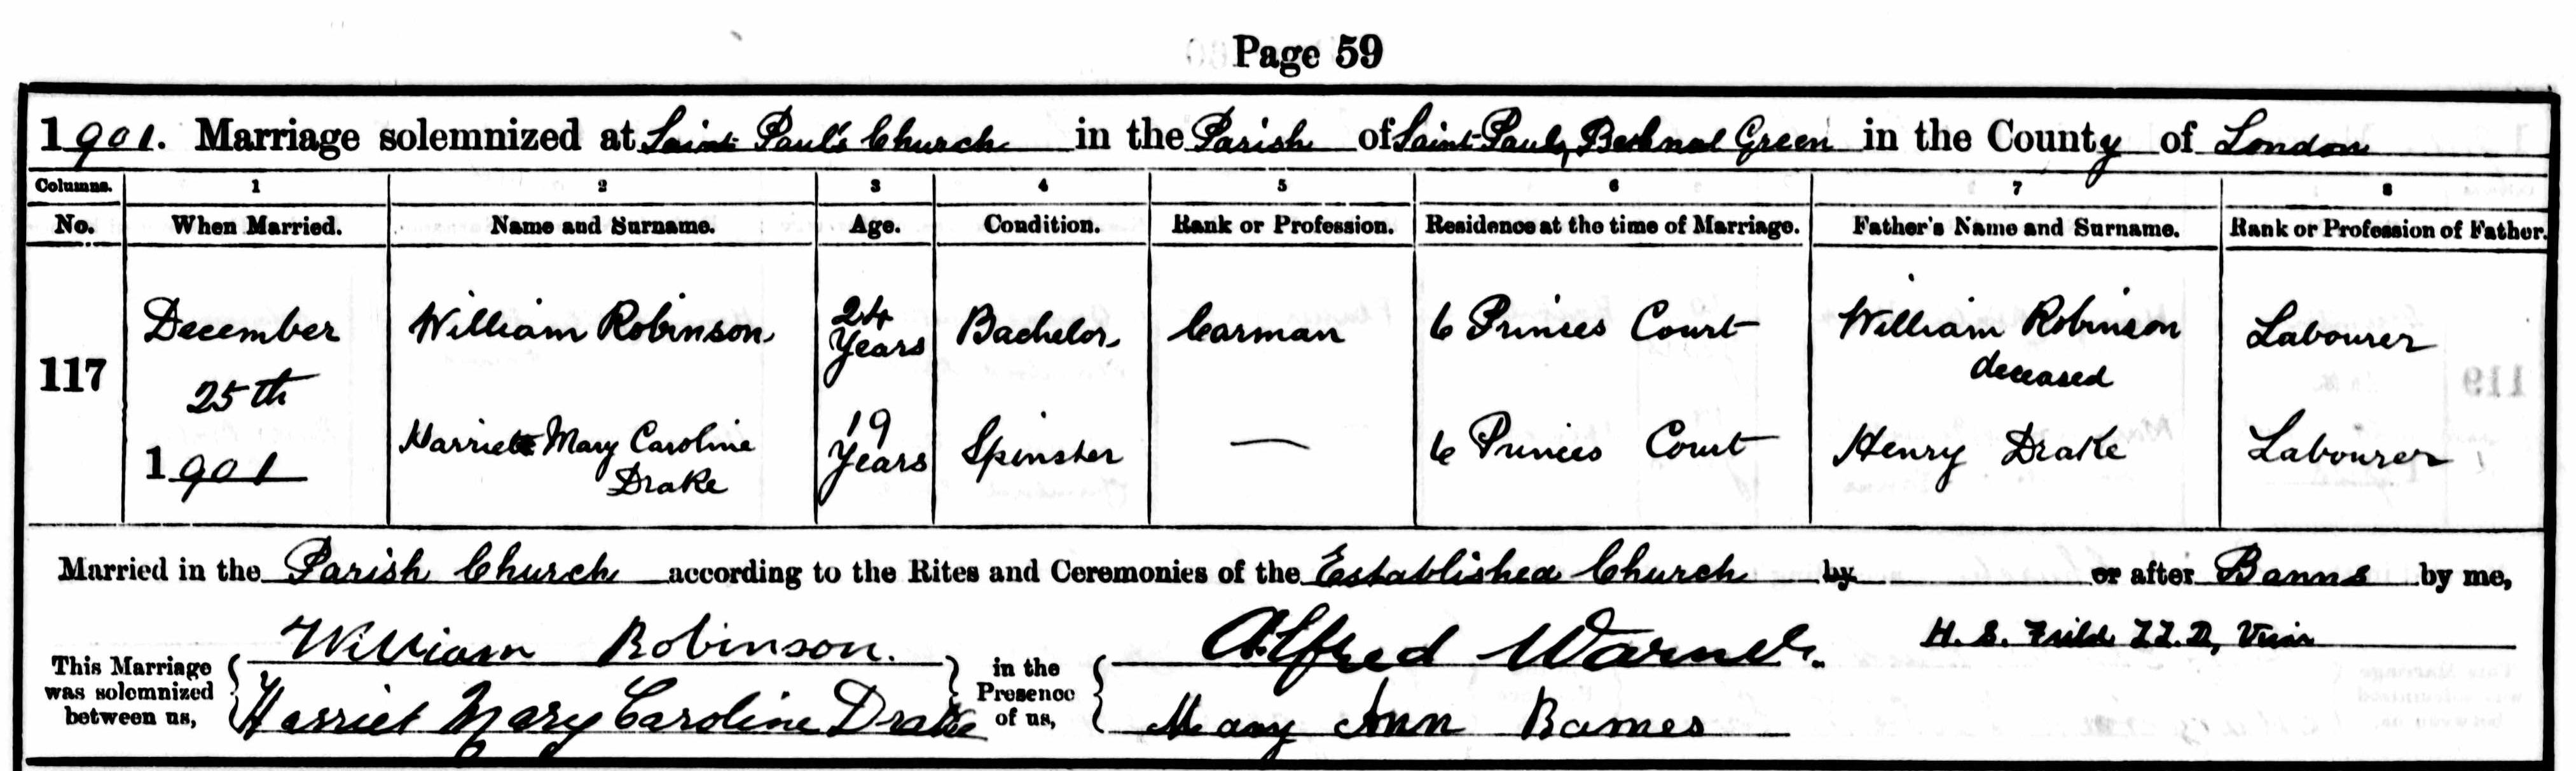 Page 59
1901. Marriage solemnized at Saint Paul's Church in the Parish of Saint Pauls, Bethnal Green in the County of London
Columns. 1 2 3 4 5 6 7 8
No. When Married. Name and Surname. Age. Condition. Rank or Profession. Residence at the time of Marriage. Father's Name and Surname. Rank or Profession of Father.
117
December
25th
1901
William Robinson
24
Years
Bachelor
Carman
6 Princes Court
William Robinson
deceased
Labourer
Harriet Mary Caroline
Drake
19
Years
Spinster
—
6 Princes Court
Henry Drake
Labourer
Married in the Parish Church according to the Rites and Ceremonies of the Established Church by or after Banns by me,
H. S. LL.D, Vicar
This Marriage
was solemnized
between us,
William Robinson.
Harriet Mary Caroline Drake
in the
Presence
of us,
Alfred Warner
Mary Ann Barnes